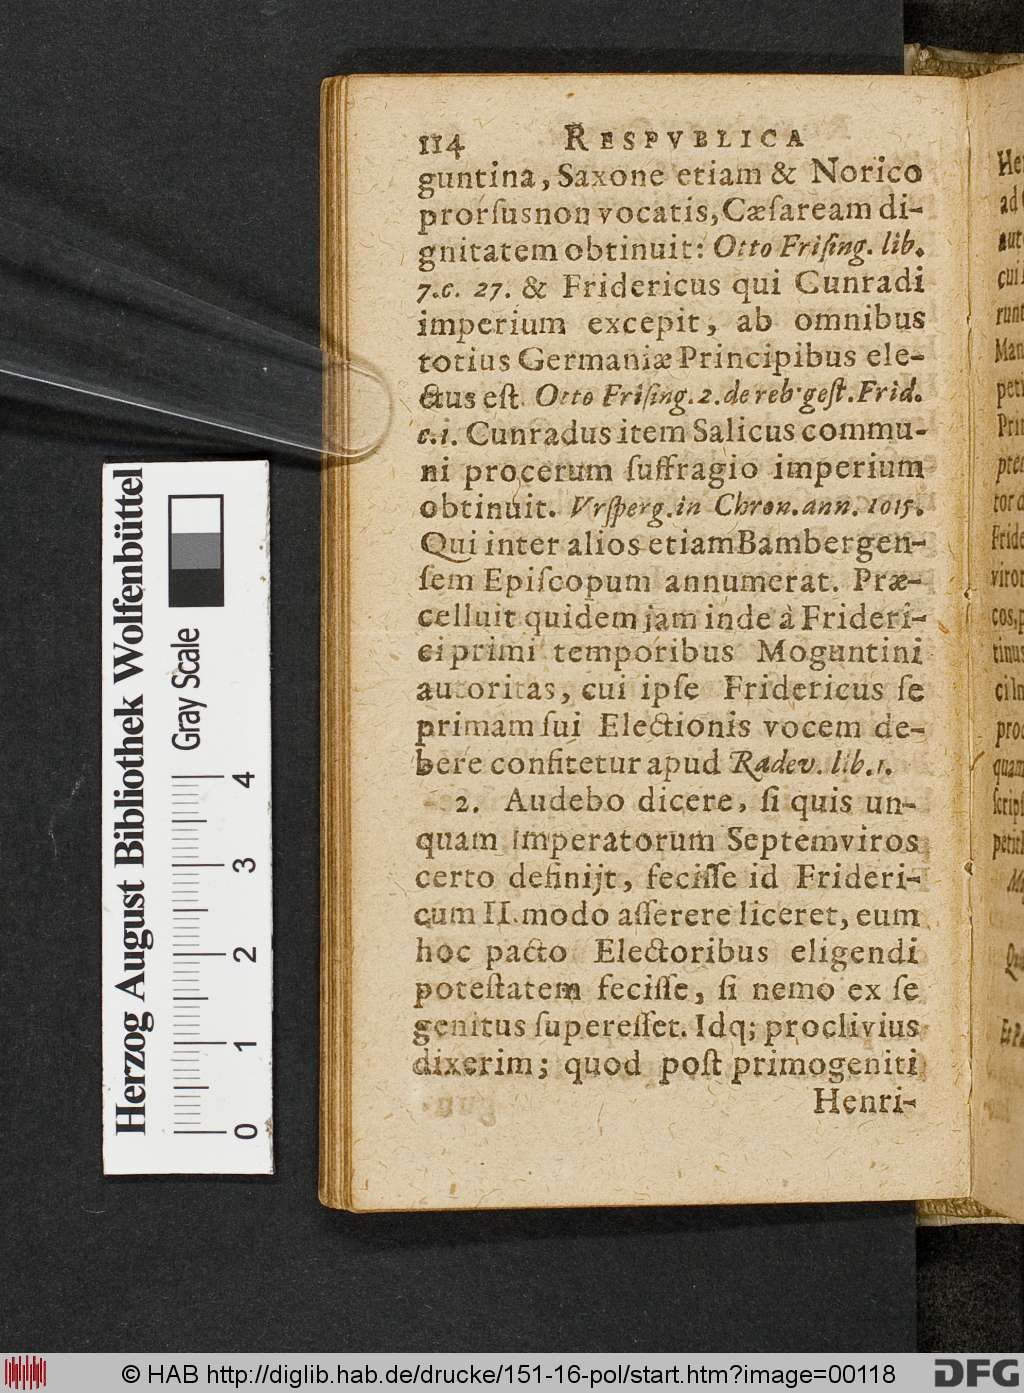 114 RESPVBLICA
guntina, Saxone etiam & Norico
prorſusnon vocatis, Cæſaream di-
gnitatem obtinuit: Otto Friſing. lib.
7.c. 27. & Fridericus qui Cunradi
imperium excepit, ab omnibus
totius Germaniæ Principibus ele-
ctus eſt Otto Friſing. 2. de reb' geſt. Frid.
c.1. Cunradus item Salicus commu-
ni procerum ſuffragio imperium
obtinuit. Vrſperg. in Chron. ann. 1015.
Qui inter alios etiam Bambergen-
ſem Epiſcopum annumerat. Præ-
celluit quidem jam inde à Frideri-
ci primi temporibus Moguntini
autoritas, cui ipſe Fridericus ſe
primam ſui Electionis vocem de-
bere confitetur apud Radev. lib. 1.
2. Audebo dicere, ſi quis un-
quam Imperatorum Septemviros
certo definijt, feciſſe id Frideri-
cum II. modo aſſerere liceret, eum
hoc pacto Electoribus eligendi
poteſtatem feciſſe, ſi nemo ex ſe
genitus ſupereſſet. Idq; proclivius
dixerim; quod poſt primogeniti
Henri-
Herzog August Bibliothek Wolfenbüttel
Gray Scale
0 1 2 3 4
© HAB http://diglib.hab.de/drucke/151-16-pol/start.htm?image=00118
DFG